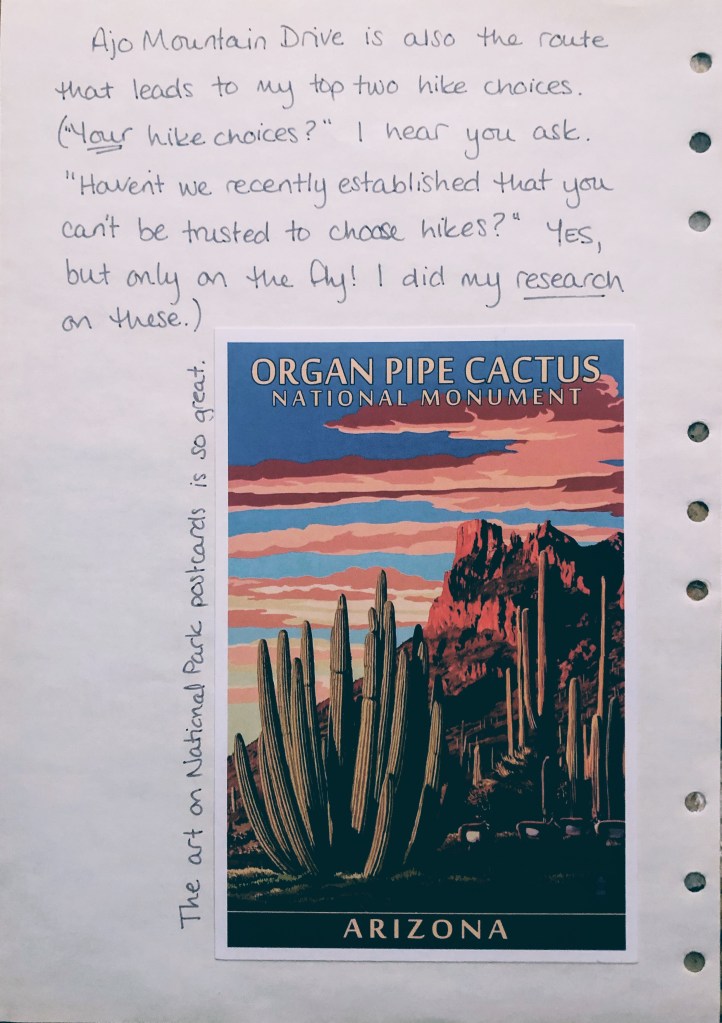 Ajo Mountain Drive is also the route
that leads to my top two hike choices.
("Your hike choices?" I hear you ask.
"Haven't we recently established that you
can't be trusted to choose hikes?" YES,
but only on the fly! I did my research
on these.)
The art on National Park postcards is so great.
ORGAN PIPE CACTUS
NATIONAL MONUMENT
ARIZONA